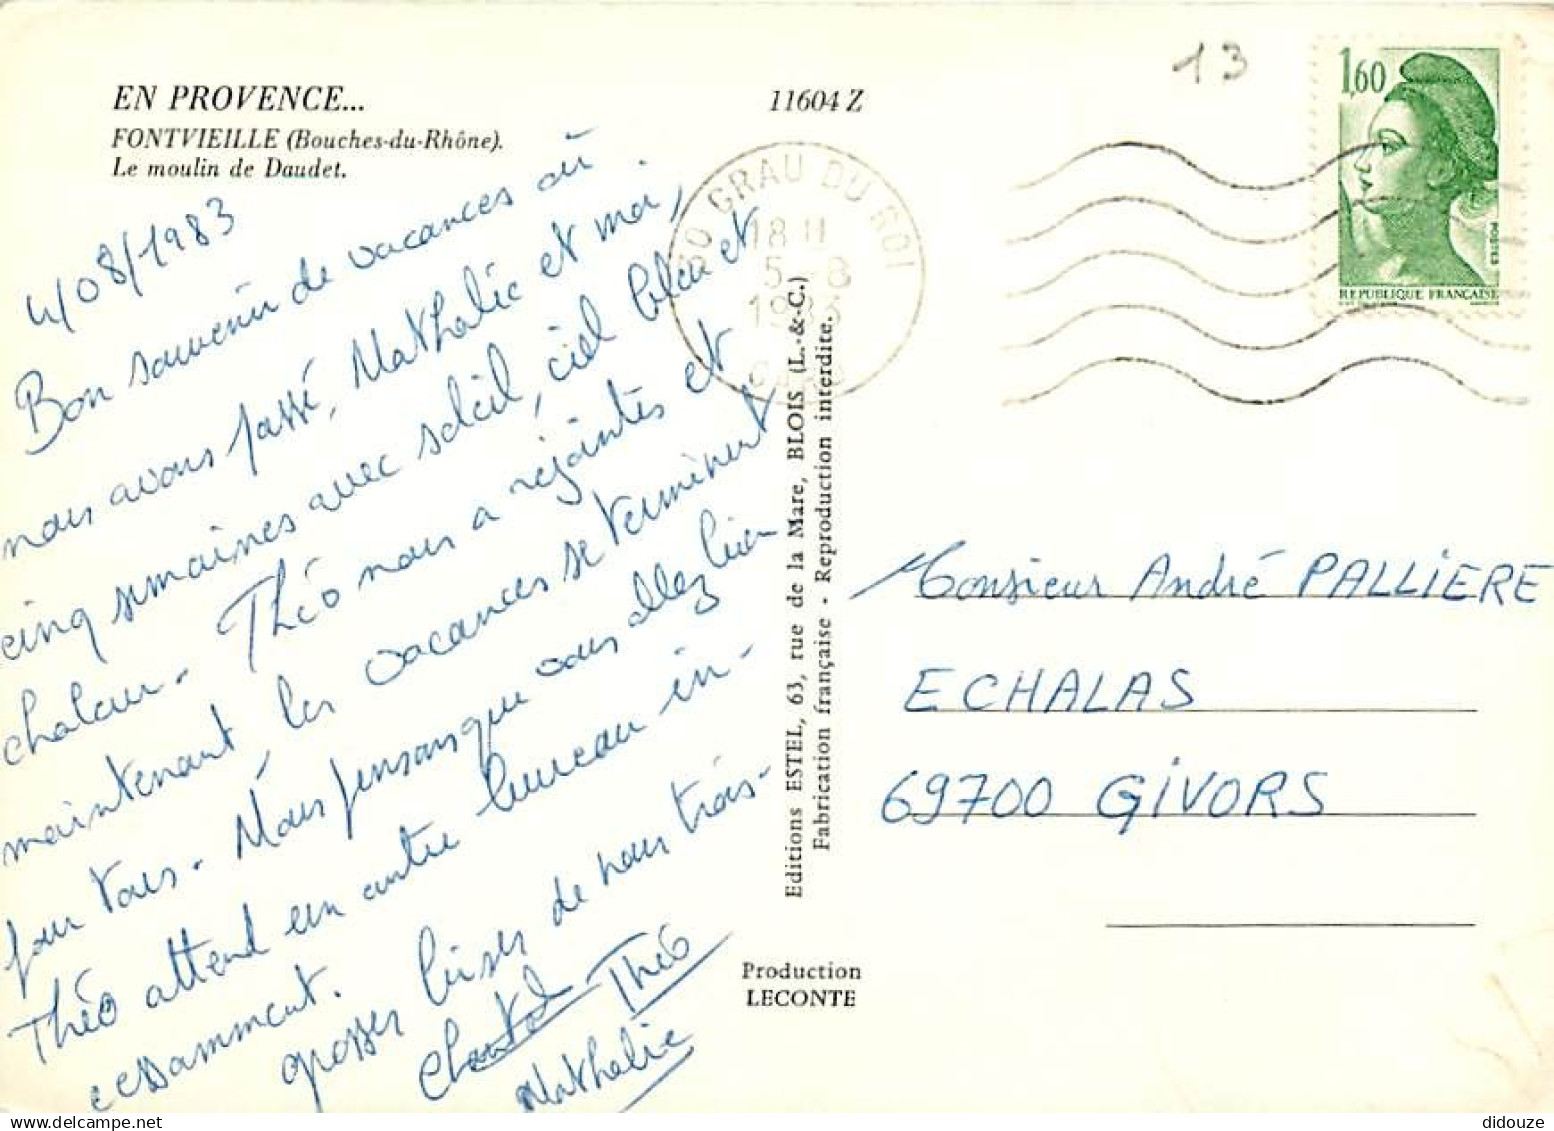 EN PROVENCE...
FONTVIEILLE (Bouches-du-Rhône).
Le moulin de Daudet.
11604 Z
13
1,60
POSTES
REPUBLIQUE FRANÇAISE
30 GRAU DU ROI
18 H
5-8
1983
GARD
4/08/1983
Bon souvenir de vacances où
nous avons passé, Nathalie et moi,
cinq semaines avec soleil, ciel bleu et
chaleur. Théo nous a rejointes et
maintenant, les vacances se terminent
pour tous. Nous pensons que vous allez bien
Théo attend un autre bureau in-
cessamment.
grosses bises de nous trois.
Chantal Théo
Nathalie
Editions ESTEL, 63, rue de la Mare, BLOIS (L.-&-C.)
Fabrication française - Reproduction interdite.
Production
LECONTE
Monsieur André PALLIERE
ECHALAS
69700 GIVORS
didouze